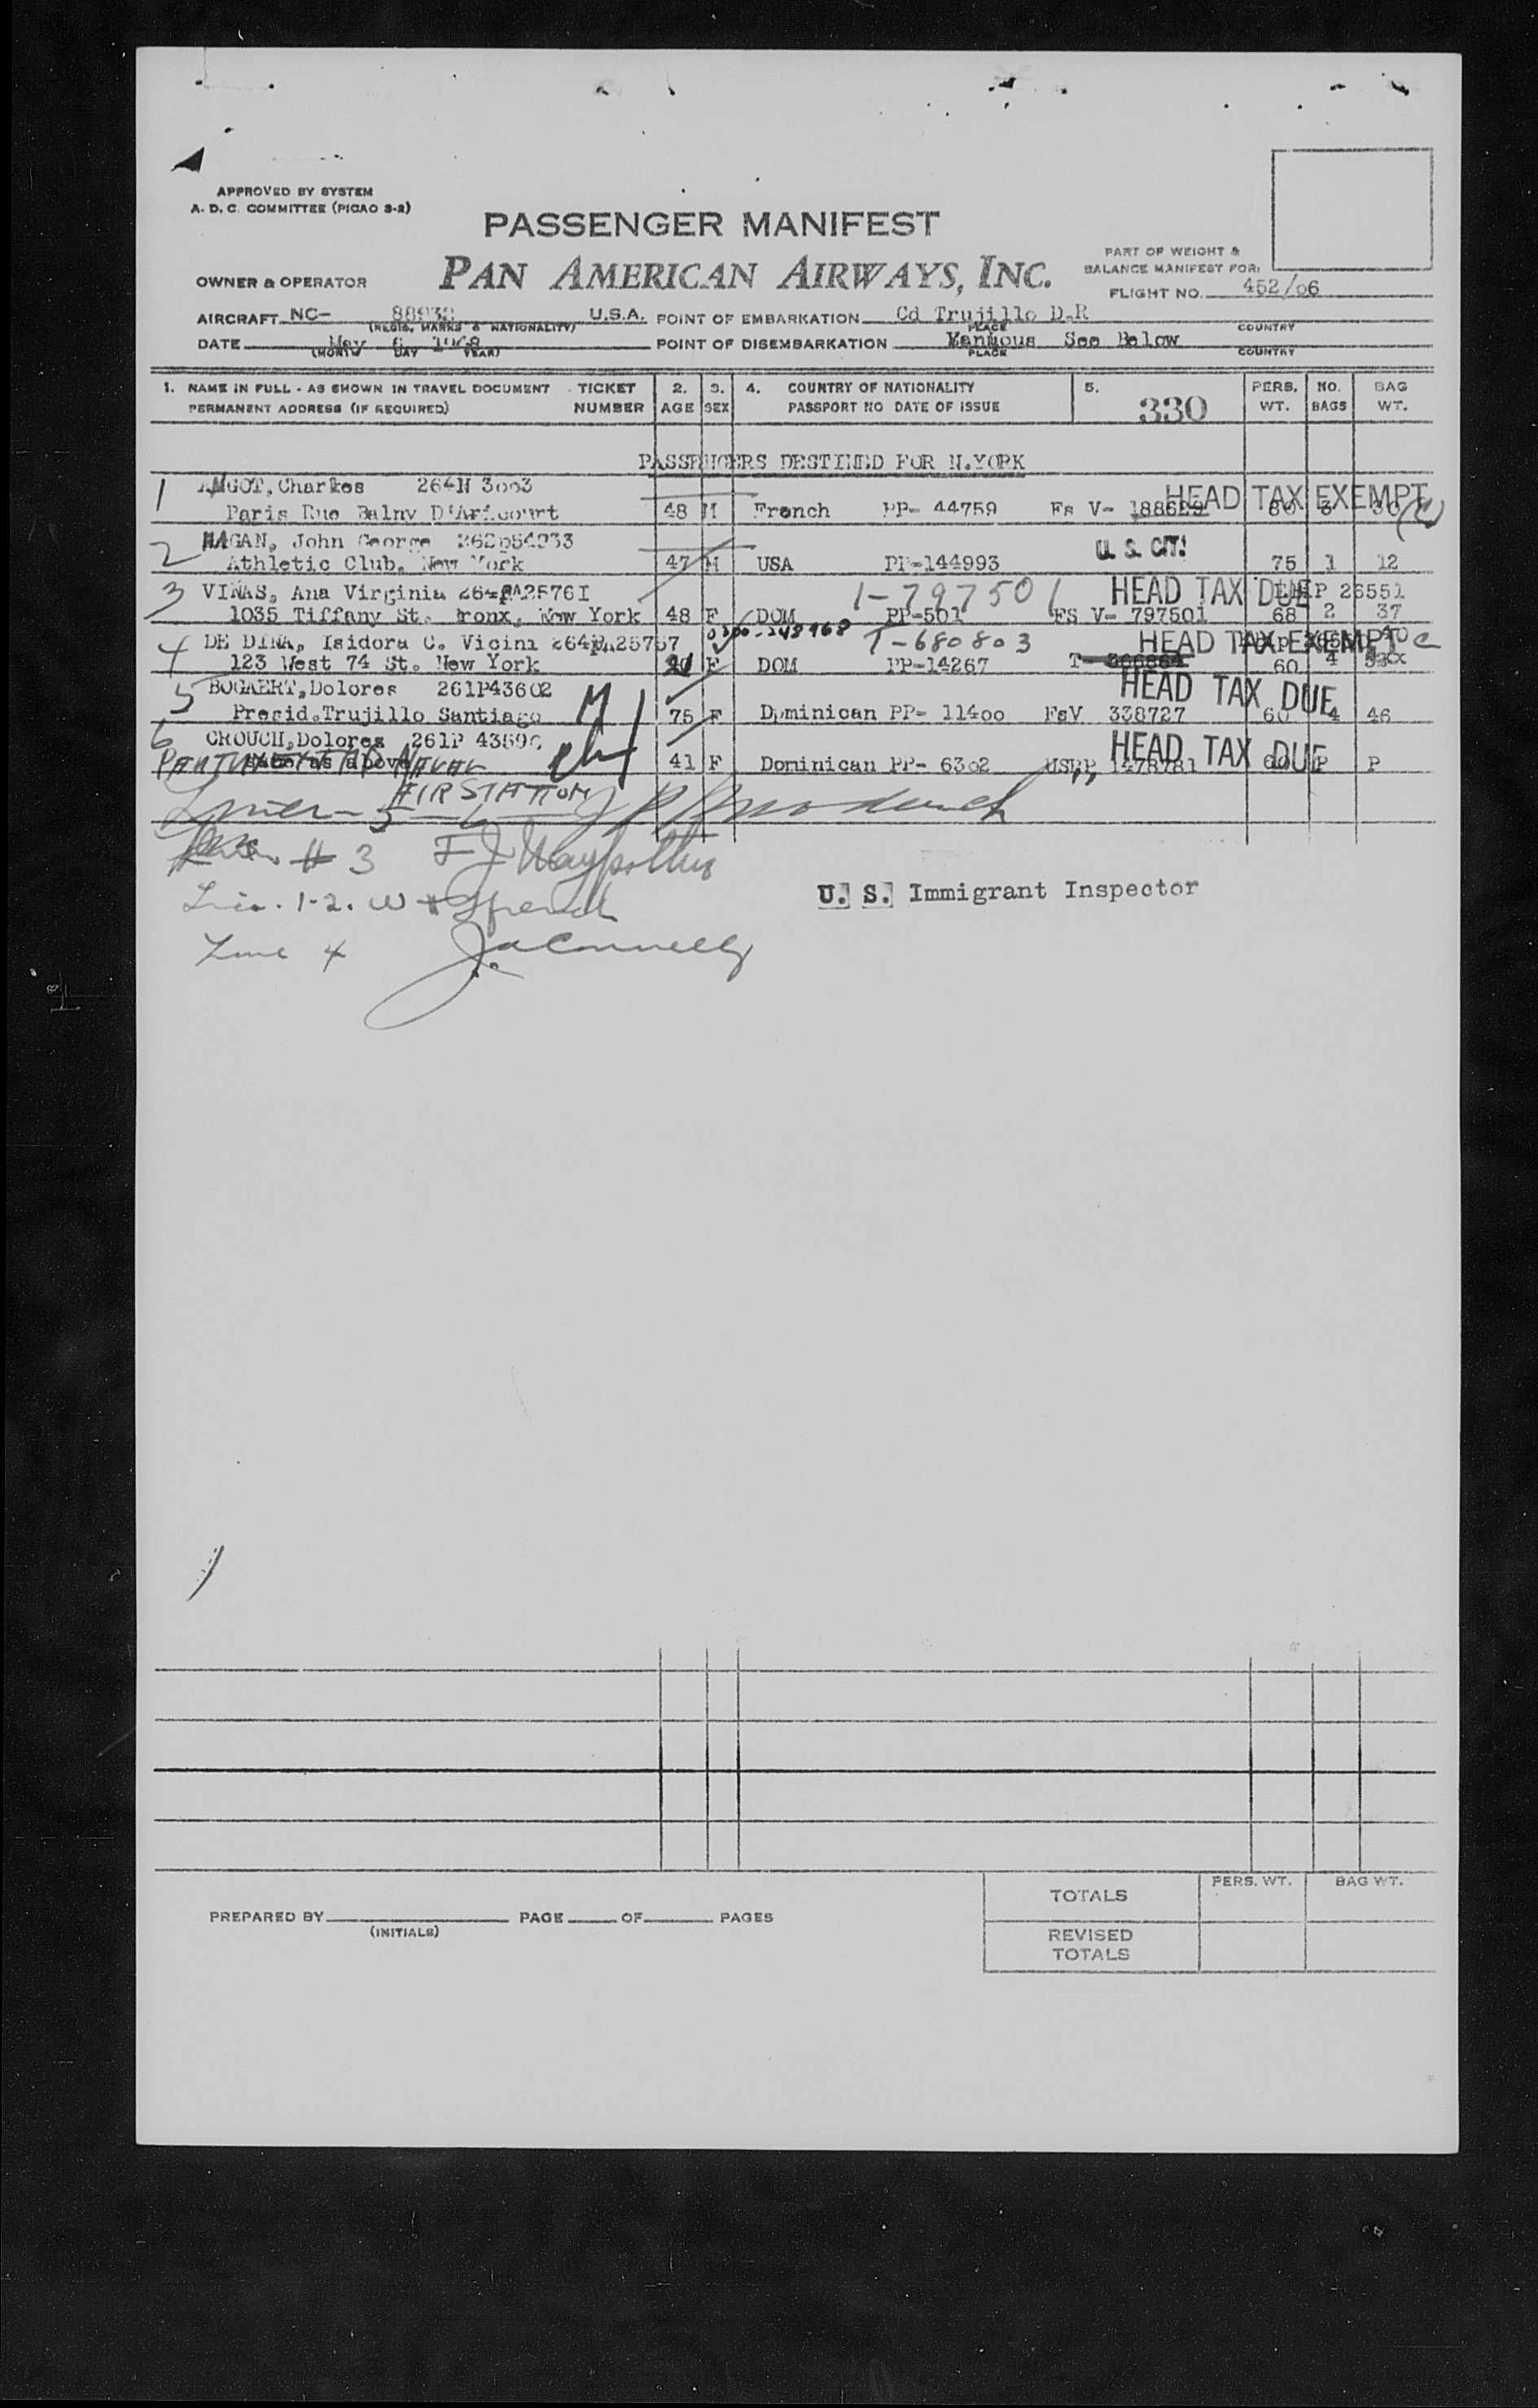 APPROVED BY SYSTEM
A. D. C. COMMITTEE (PICAO S-2)
PASSENGER MANIFEST
OWNER & OPERATOR PAN AMERICAN AIRWAYS, INC.
PART OF WEIGHT &
BALANCE MANIFEST FOR:
FLIGHT NO. 452/06
AIRCRAFT NC- 88938 U.S.A. POINT OF EMBARKATION Cd Trujillo D.R
(REGIS. MARKS & NATIONALITY) PLACE COUNTRY
DATE May 6 1948 POINT OF DISEMBARKATION See Below
(MONTH DAY YEAR) PLACE COUNTRY
1. NAME IN FULL - AS SHOWN IN TRAVEL DOCUMENT TICKET 2. 3. 4. COUNTRY OF NATIONALITY 5. PERS. NO. BAG
PERMANENT ADDRESS (IF REQUIRED) NUMBER AGE SEX PASSPORT NO DATE OF ISSUE 330 WT. BAGS WT.
PASSENGERS DESTINED FOR N.YORK
1 ANGOT, Charles 264N 3003 HEAD TAX EXEMPT
Paris Rue Balny 48 M French PP- 44759 Fs V- 188629 80 3 30
2 HAGAN, John George U. S. CIT.
Athletic Club, New York 47 M USA PP-144993 75 1 12
3 VINAS, Ana Virginia 1-797501 HEAD TAX DUE 26551
1035 Tiffany St. Bronx, New York 48 F DOM PP-501 FS V- 797501 68 2 37
4 DE DINA, Isidora C. Vicini 0300-348968 T-680803 HEAD TAX EXEMPT C
123 West 74 St. New York F DOM PP-14267 T-366864 60 4
5 BOGAERT, Dolores 261P43602 HEAD TAX DUE
Presid. Trujillo Santiago 75 F Dominican PP- 11400 FsV 338727 60 4 46
6 CROUCH, Dolores 261P HEAD TAX DUE
same as above 41 F Dominican PP- 6302 1478781 60 P P
AIR STATION
5-6
# 3
U. S. Immigrant Inspector
1-2.
Line 4 J. A. Connelly
TOTALS PERS. WT. BAG WT.
PREPARED BY PAGE OF PAGES
(INITIALS)
REVISED
TOTALS